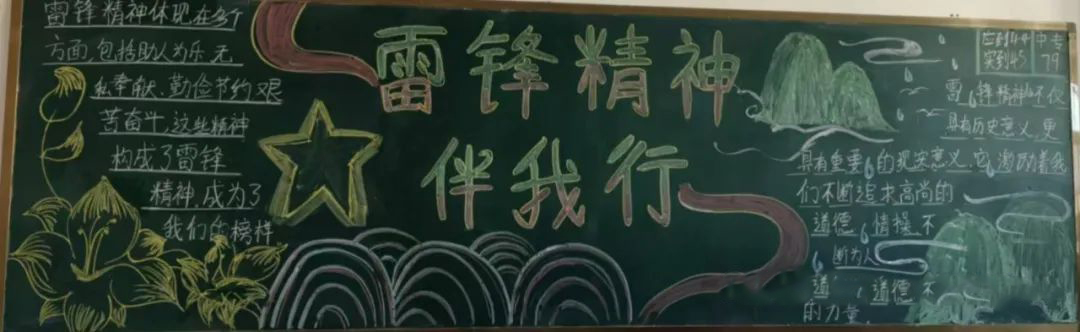 雷锋精神体现在多个
方面,包括助人为乐、无
私奉献、勤俭节约、艰
苦奋斗,这些精神
构成了雷锋
精神,成为了
我们的榜样
雷锋精神
伴我行
应到44
实到45
中专
79
雷锋精神不仅
具有历史意义,更
具有重要的现实意义,它激励着我
们不断追求高尚的
道德情操,不
断为人
道,道德不
的力量